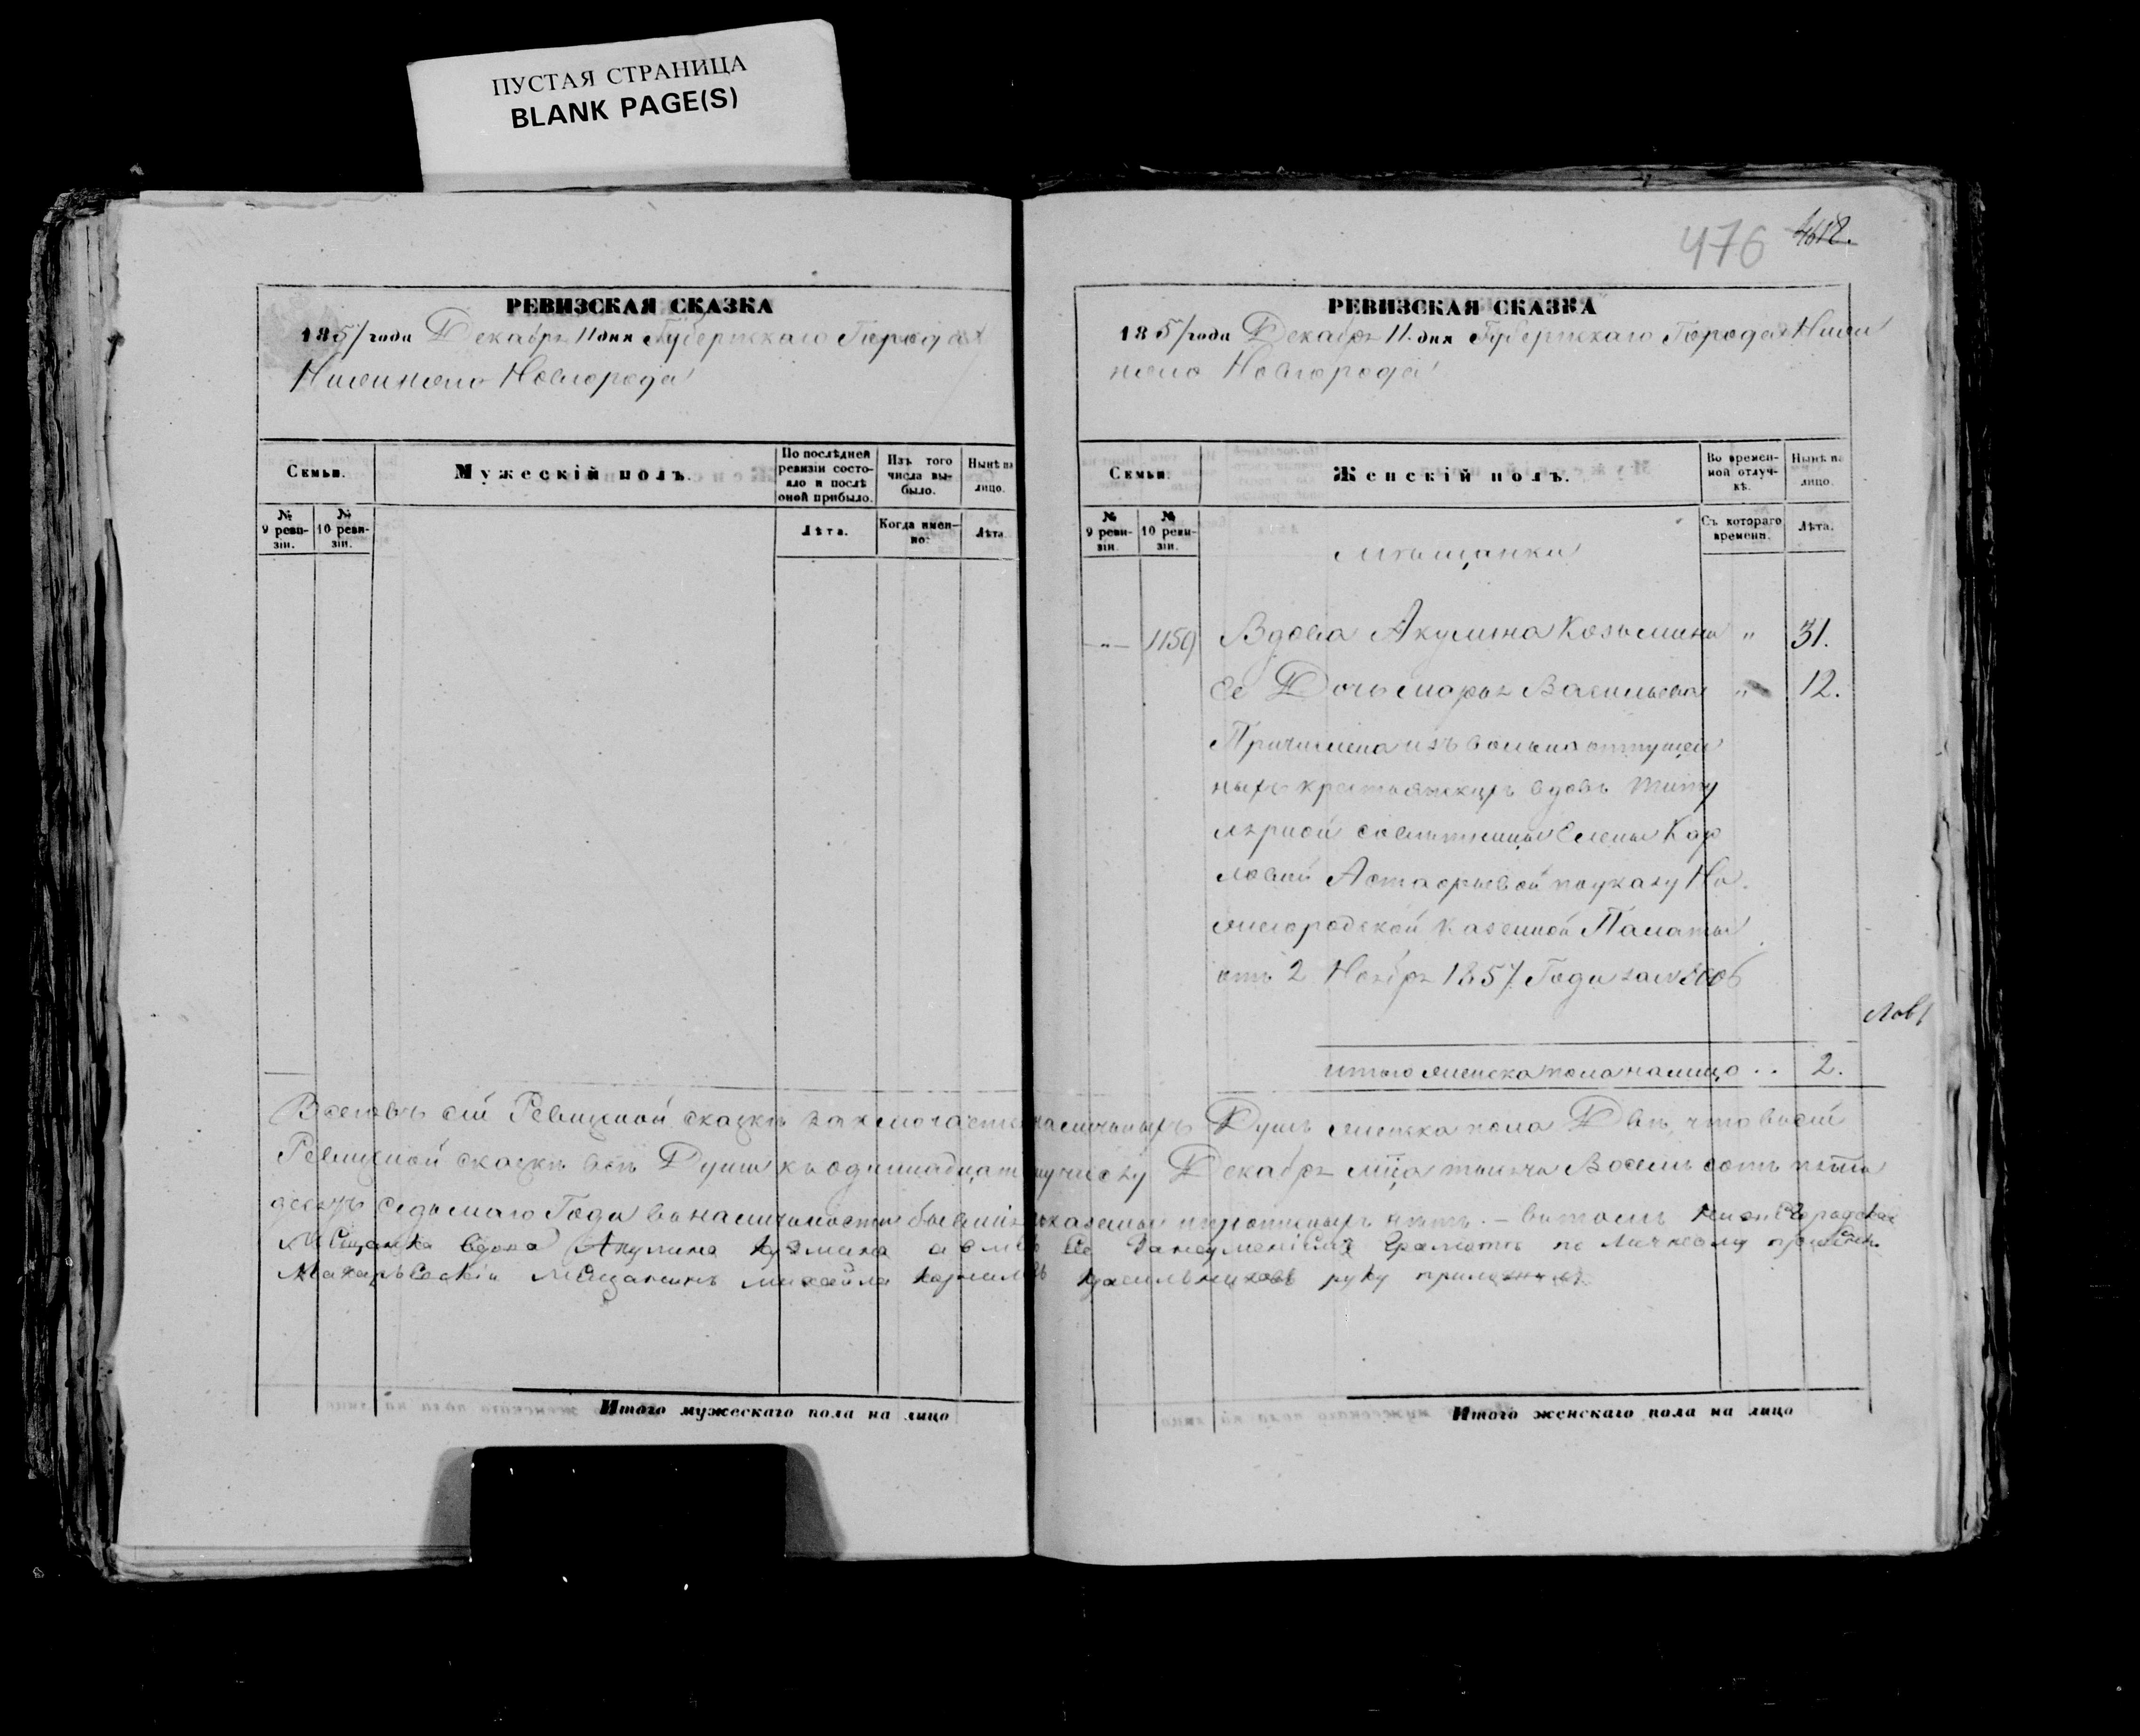 ПУСТАЯ СТРАНИЦА
BLANK PAGE(S)
РЕВИЗСКАЯ СКАЗКА
1857 года Декабря 11 дня Губернскаго Города
Нижняго Новгорода
Семьи.
Мужескій полъ.
По послѣдней ревизіи состояло и послѣ оной прибыло.
Изъ того числа выбыло.
Нынѣ на лицо.
№ 9 ревизіи.
№ 10 ревизіи.
Лѣта.
Когда именно.
Лѣта.
476 4612.
РЕВИЗСКАЯ СКАЗКА
1857 года Декабря 11 дня Губернскаго Города Ниж
няго Новгорода
Семьи.
Женскій полъ.
Во временной отлучкѣ.
Нынѣ на лицо.
№ 9 ревизіи.
№ 10 ревизіи.
Съ котораго времени.
Лѣта.
Мѣщанки
-"- 1159 Вдова Акулина Козьмина " 31.
Ее Дочь Марья Васильева " 12.
Причислена изъ вольноотпущен
ныхъ крестьянскихъ вдовъ Титу
лярной совѣтницы Елены Кар
ловой Астафьевой по указу Ни
жегородской Казенной Палаты
отъ 2 Ноября 1857 Года за №
итого женска пола налицо . . 2.
Всего въ сей Ревизской сказкѣ заключается наличныхъ Душъ женска пола Двѣ, что въ сей
Ревизской сказкѣ всѣ Души къ одиннадцатому числу Декабря мца тысяча Восемь сотъ пять
десятъ седьмаго Года въ наличности бывшія показаны и прописныхъ нѣтъ. – въ томъ Нижегородская
Мѣщанка вдова Акулина Кузмина а вмѣсто Ее за неуменіемъ Грамоты по личному прошенію
Макарьевскій Мещанинъ Михайла Корнилов Красильниковъ руку приложилъ
Итого мужескаго пола на лицо
Итого женскаго пола на лицо